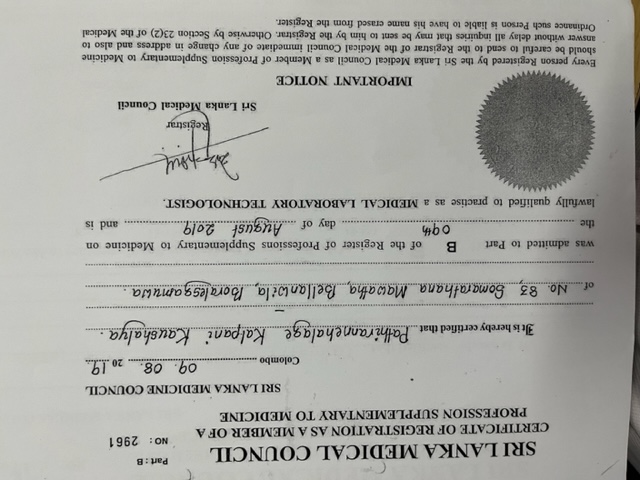 Part : B
NO : 2961
SRI LANKA MEDICAL COUNCIL
CERTIFICATE OF REGISTRATION AS A MEMBER OF A
PROFESSION SUPPLEMENTARY TO MEDICINE
SRI LANKA MEDICINE COUNCIL
Colombo 09. 08. 2019
It is hereby certified that Pathirannehalage Kalpani Kaushalya.
of No. 83, Somarathana Mawatha, Bellanwila, Boralesgamuwa.
was admitted to Part B of the Register of Professions Supplementary to Medicine on
the 09th day of August 2019 and is
lawfully qualified to practise as a MEDICAL LABORATORY TECHNOLOGIST.
Registrar
Sri Lanka Medical Council
IMPORTANT NOTICE
Every person Registered by the Sri Lanka Medical Council as a Member of Profession Supplementary to Medicine
should be careful to send to the Registrar of the Medical Council immediate of any change in address and also to
answer without delay all inquiries that may be sent to him by the Registrar. Otherwise by Section 23(2) of the Medical
Ordinance such Person is liable to have his name erased from the Register.